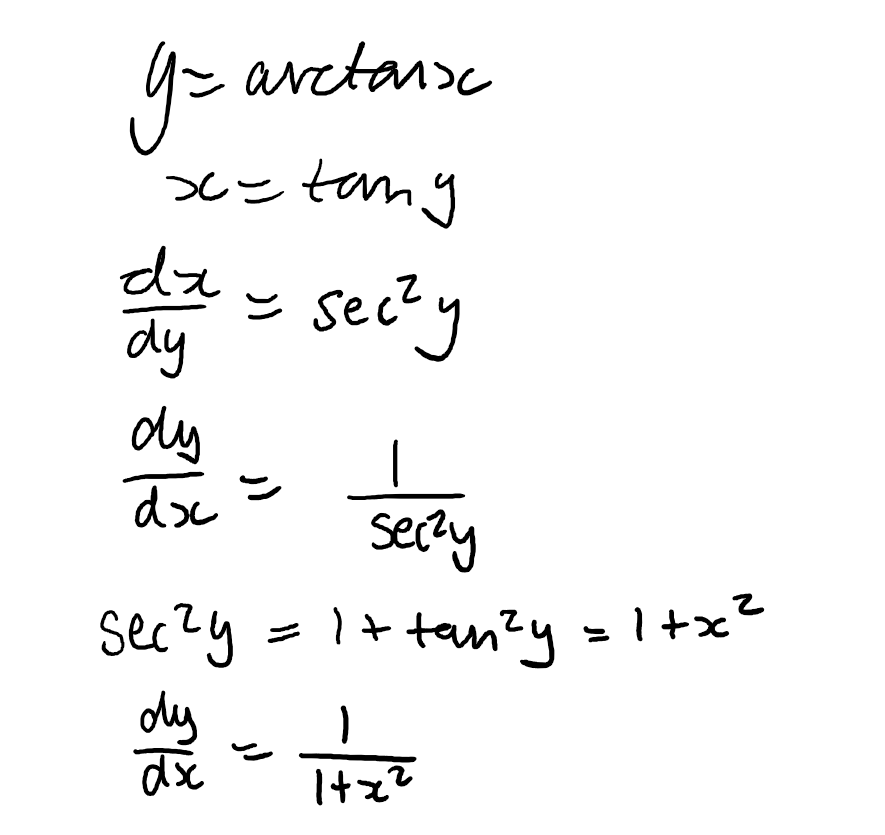 y = arctan x
x = tan y
dx/dy = sec²y
dy/dx = 1/sec²y
sec²y = 1 + tan²y = 1 + x²
dy/dx = 1/1+x²